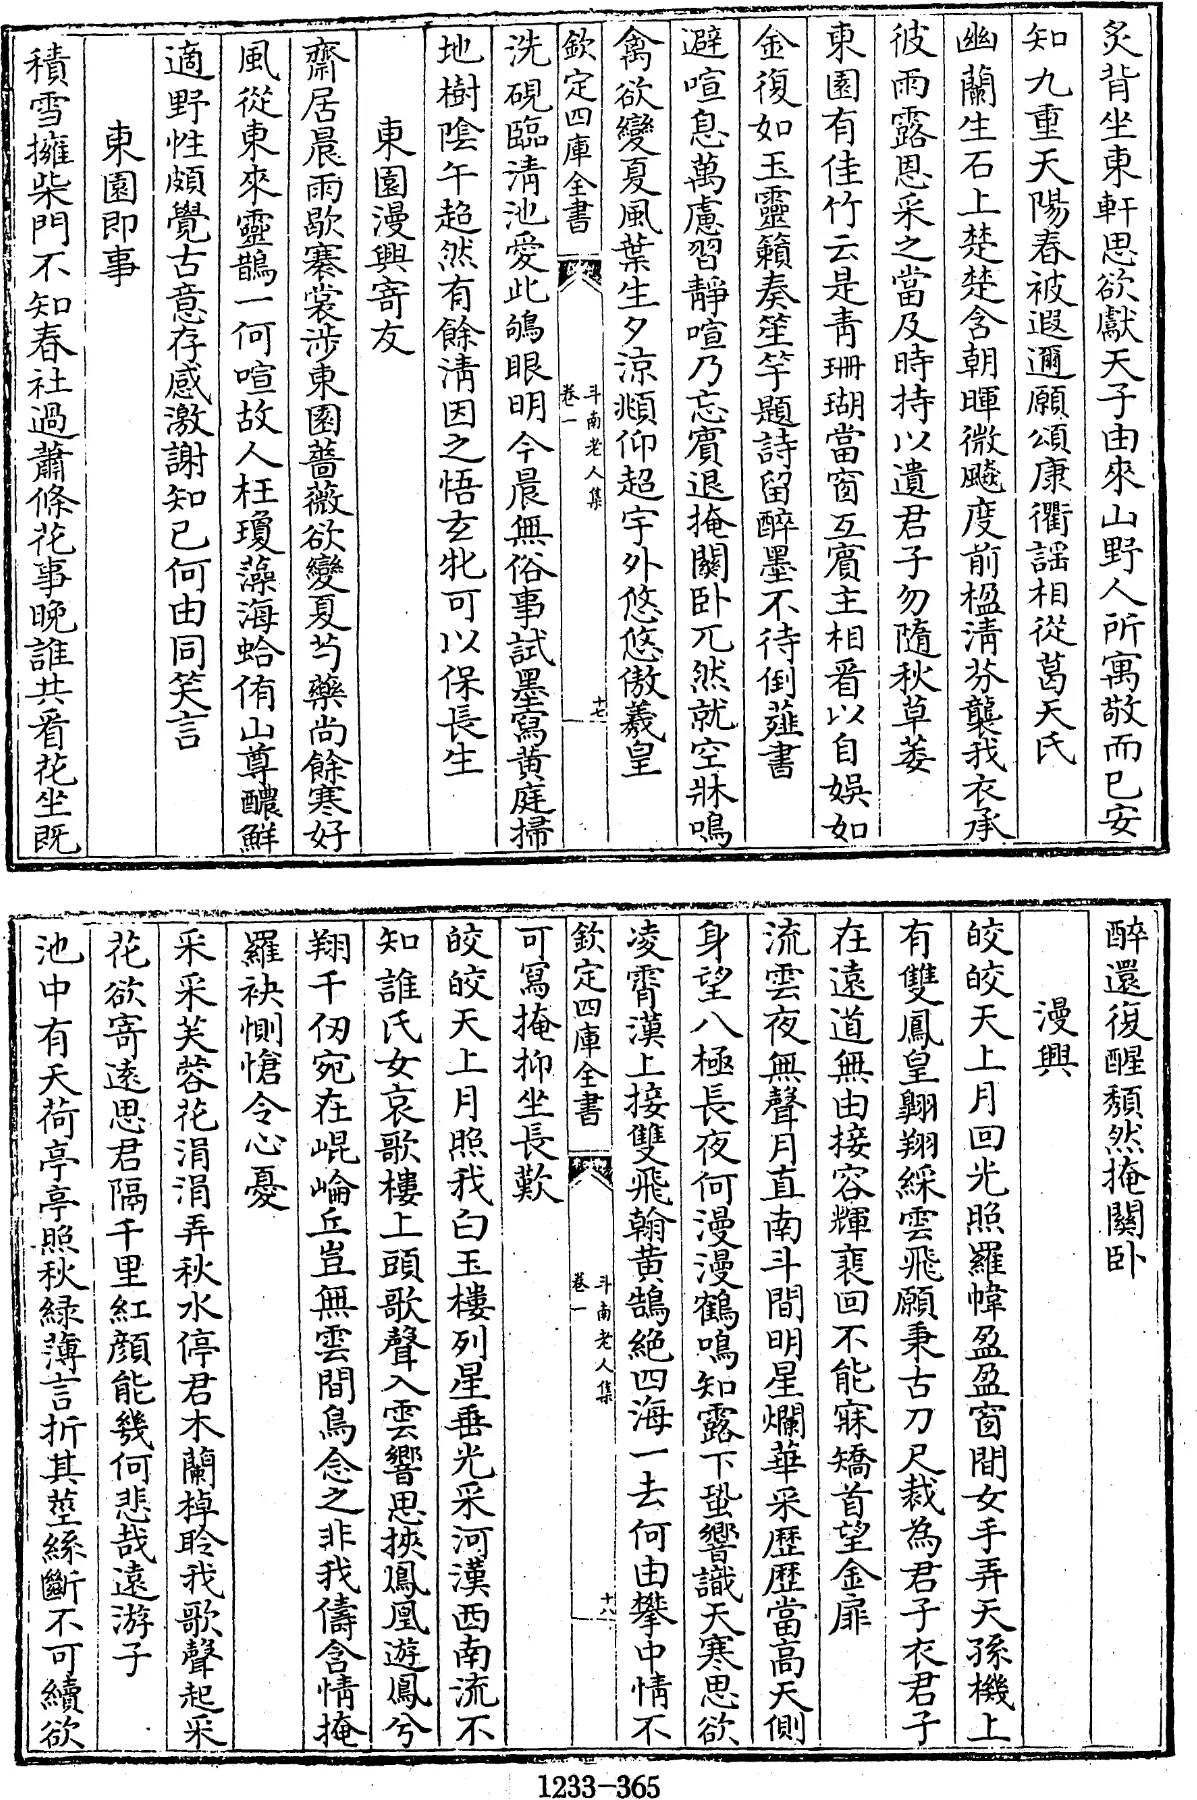 炙背坐東軒思欲獻天子由來山野人所寓敬而已安
知九重天陽春被遐邇願頌康衢謡相從葛天氏
幽蘭生石上楚楚含朝暉微飈度前楹清芬襲我衣承
彼雨露恩采之當及時持以遺君子勿隨秋草萎
東園有佳竹云是青珊瑚當窗互賔主相看以自娛如
金復如玉靈籟奏笙竽題詩留醉墨不待倒薤書
避喧息萬慮習靜喧乃忘賔退掩關卧兀然就空牀鳴
禽欲變夏風葉生夕涼頫仰超宇外悠悠傲羲皇
欽定四庫全書
斗南老人集
卷一
十七
洗硯臨清池愛此鴝眼明今晨無俗事試墨寫黄庭掃
地樹陰午超然有餘清因之悟玄牝可以保長生
東園漫興寄友
齋居晨雨歇褰裳涉東園薔薇欲變夏芍藥尚餘寒好
風從東來靈鵲一何喧故人枉瓊藻海蛤侑山尊醲鮮
適野性頗覺古意存感激謝知已何由同笑言
東園即事
積雪擁柴門不知春社過蕭條花事晚誰共看花坐既
醉還復醒頽然掩關卧
漫興
皎皎天上月回光照羅幃盈盈窗間女手弄天孫機上
有雙鳳皇翺翔綵雲飛願秉古刀尺裁為君子衣君子
在遠道無由接容輝裵回不能寐矯首望金扉
流雲夜無聲月直南斗間明星爛華采歷歷當高天側
身望八極長夜何漫漫鶴鳴知露下蛩響識天寒思欲
凌霄漢上接雙飛翰黄鵠絶四海一去何由攀中情不
欽定四庫全書
斗南老人集
卷一
十八
可寫掩抑坐長歎
皎皎天上月照我白玉樓列星垂光采河漢西南流不
知誰氏女哀歌樓上頭歌聲入雲響思挾鳳凰遊鳳兮
翔千仞宛在崐崘丘豈無雲間鳥念之非我儔含情掩
羅袂惻愴令心憂
采采芙蓉花涓涓弄秋水停君木蘭棹聆我歌聲起采
花欲寄逺思君隔千里紅顔能幾何悲哉遠游子
池中有天荷亭亭照秋緑薄言折其莖絲斷不可續欲
1233-365